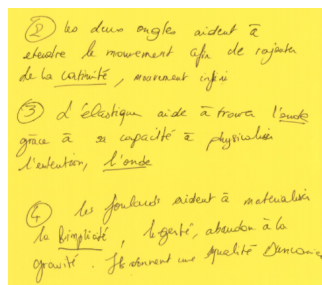 ② les deux ongles aident à
etendre le mouvement afin de rajouter
de la continuité, mouvement infini
③ L'élastique aide à trouver l'onde
grâce à sa capacité à physicaliser
l'intention, l'onde
④ les foulards aident à materialiser
la simplicité, legerté, abandon à la
gravité. Ils donnent une qualité